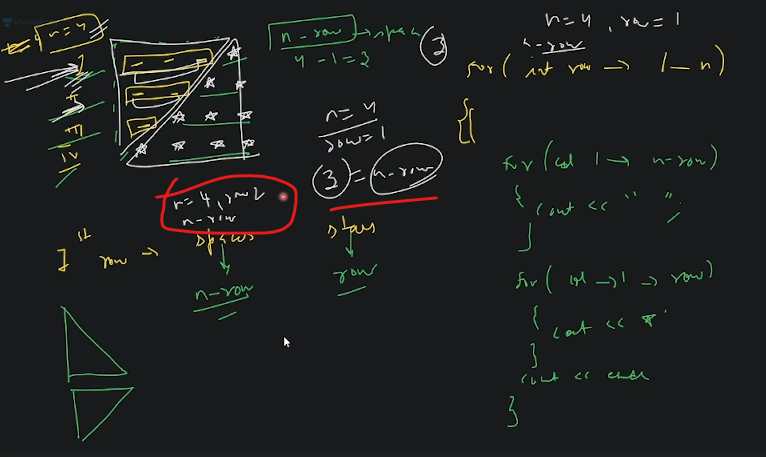 n=4
I
II
III
IV
n-row → space
4-1=3
3
n=4
row=1
3 = n-row
n=4, row 2
n-row
1st row →
spaces
n-row
stars
row
n=4, row=1
n-row
for( int row → 1 — n)
{
for (col 1 → n-row)
{
cout << " ";
}
for( col → 1 → row)
{
cout << *
}
cout << endl
}